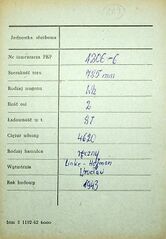 Jednostka służbowa
Nr inwentarza PKP
Szerokość toru 785 mm
Rodzaj wagonu Wk
Ilość osi 2
Ładowność w t
Ciężar własny 4620
Rodzaj hamulca ręczny
Wytwórnia Linke-Hofman
Wrocław
Rok budowy 1943